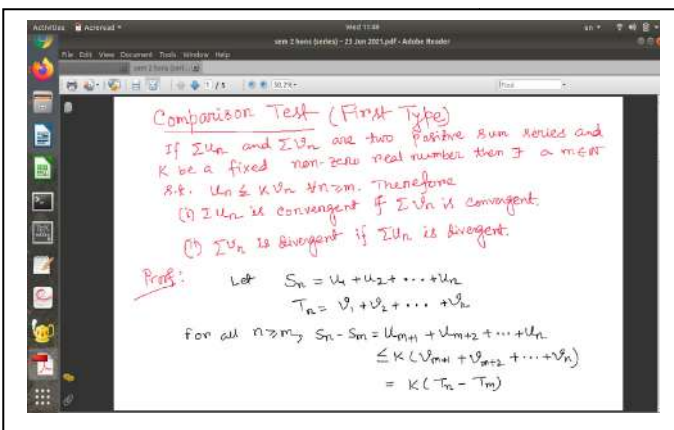 Activities Acroread Wed 11:49 en
sem 2 hons (series) - 23 Jun 2021.pdf - Adobe Reader
File Edit View Document Tools Window Help
1 / 5 Find
Comparison Test (First Type)
If Σun and Σvn are two positive sum series and
K be a fixed non-zero real number then ∃ a m∈N
s.t. un ≤ K vn ∀n≥m. Therefore
(i) Σun is convergent if Σvn is convergent.
(ii) Σvn is divergent if Σun is divergent.
Proof: Let Sn = u1 + u2 + ... + un
Tn = v1 + v2 + ... + vn
For all n≥m, Sn - Sm = um+1 + um+2 + ... + un
≤ K (vm+1 + vm+2 + ... + vn)
= K (Tn - Tm)